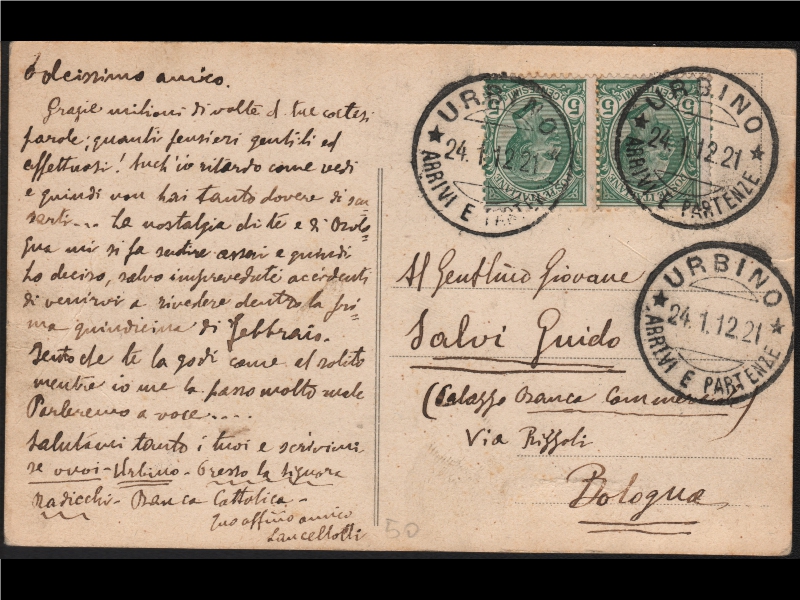 Dolcissimo amico.
Grazie milioni di volte d tue cortesi
parole; quanti pensieri gentili ed
affettuosi! Anch'io ritardo come vedi
e quindi non hai tanto dovere di scu
sarti... La nostalgia di te e di Bolo-
gna mi si fa sentire assai e quindi
ho deciso, salvo imprevedute accidenti
di venirvi a rivedere dentro la pri
ma quindicina di Febbraio.
Sento che te la godi come al solito
mentre io me la passo molto male
Parleremo a voce....
Salutami tanto i tuoi e scrivimi
se vuoi - Urbino - Presso la Signora
Radicchi - Banca Cattolica -
Tuo affmo amico
Lancellotti
50
URBINO
24.1.12.21
ARRIVI E PARTENZE
URBINO
24.1.12.21
ARRIVI E PARTENZE
URBINO
24.1.12.21
ARRIVI E PARTENZE
POSTE ITALIANE
CENTESIMI
5 5
POSTE ITALIANE
CENTESIMI
5 5
Al Gentilmo Giovane
Salvi Guido
(Palazzo Banca Commerciale)
Via Rizzoli
Bologna